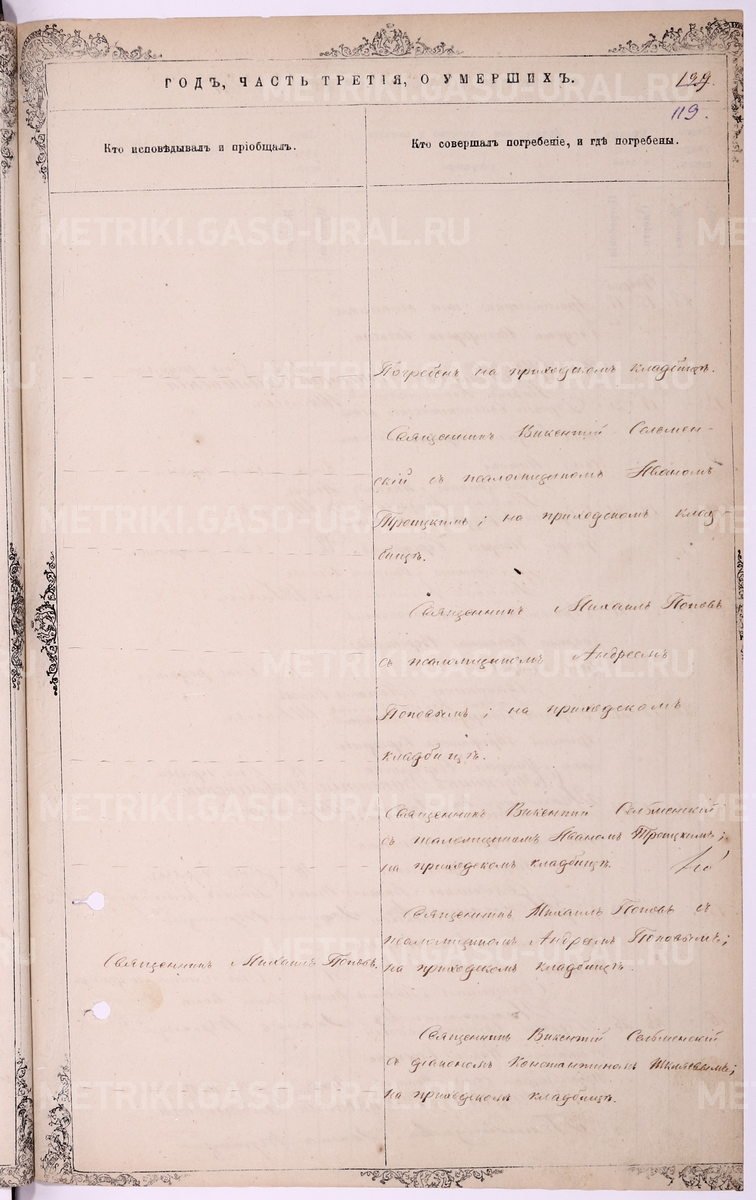 ГОДЪ, ЧАСТЬ ТРЕТІЯ, О УМЕРШИХЪ.
129.
119.
Кто исповѣдывалъ и пріобщалъ.
Кто совершалъ погребеніе, и гдѣ погребены.
METRIKI.GASO-URAL.RU
Погребенъ на приходскомъ кладбищѣ.
Священникъ Викентій
скій съ псаломщикомъ Иваномъ
Троицкимъ; на приходскомъ клад-
бищѣ.
Священникъ Михаилъ Поповъ
съ псаломщикомъ Андреемъ
Поповымъ; на приходскомъ
кладбищѣ.
Священникъ Викентій
съ псаломщикомъ Иваномъ Троицкимъ;
на приходскомъ кладбищѣ.
Священникъ Михаилъ Поповъ съ
псаломщикомъ Андреемъ Поповымъ;
на приходскомъ кладбищѣ.
Священникъ Михаилъ Поповъ.
Священникъ Викентій
съ діакономъ Константиномъ
на приходскомъ кладбищѣ.